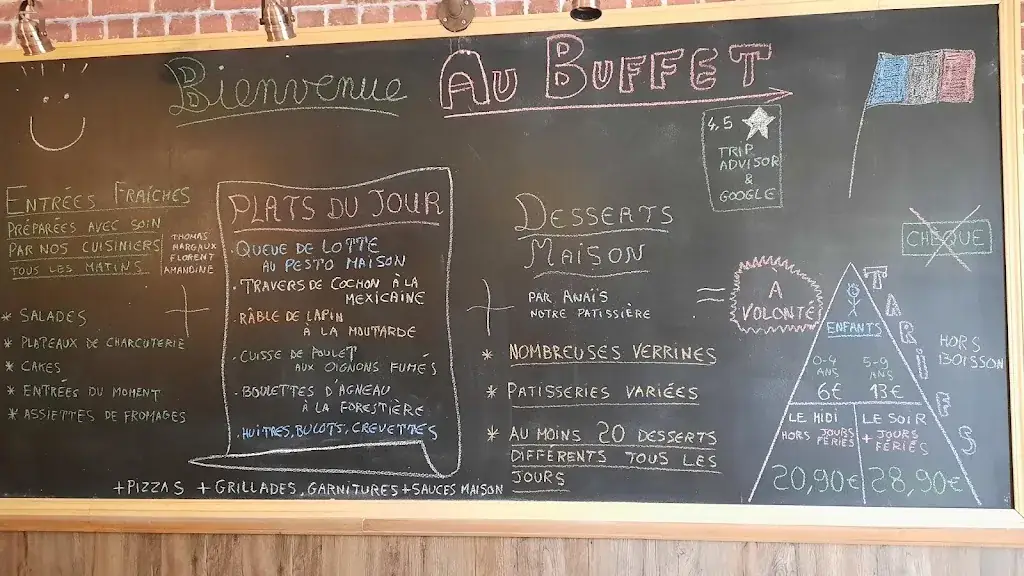 Bienvenue AU BUFFET
4,5
TRIP
ADVISOR
&
GOOGLE
ENTRÉES FRAÎCHES
PRÉPARÉES AVEC SOIN
PAR NOS CUISINIERS
TOUS LES MATINS
THOMAS
MARGAUX
FLORENT
AMANDINE
* SALADES
* PLATEAUX DE CHARCUTERIE
* CAKES
* ENTRÉES DU MOMENT
* ASSIETTES DE FROMAGES
+
PLATS DU JOUR
· QUEUE DE LOTTE
AU PESTO MAISON
· TRAVERS DE COCHON À LA
MEXICAINE
· RÂBLE DE LAPIN
À LA MOUTARDE
· CUISSE DE POULET
AUX OIGNONS FUMÉS
· BOULETTES D'AGNEAU
À LA FORESTIÈRE
· HUITRES, BULOTS, CREVETTES
+ PIZZAS + GRILLADES, GARNITURES + SAUCES MAISON
+
DESSERTS
MAISON
PAR ANAÏS
NOTRE PATISSIÈRE
* NOMBREUSES VERRINES
* PATISSERIES VARIÉES
* AU MOINS 20 DESSERTS
DIFFÉRENTS TOUS LES
JOURS
=
À
VOLONTÉ
CHEQUE
TARIFS
HORS
BOISSON
ENFANTS
0-4
ANS
6€
5-9
ANS
13€
LE MIDI
HORS JOURS
FÉRIÉS
20,90€
LE SOIR
+ JOURS
FÉRIÉS
28,90€